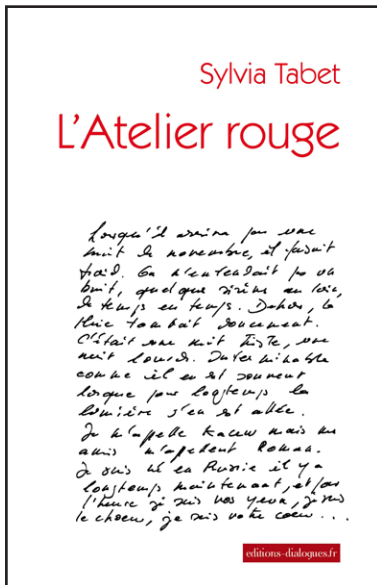 Sylvia Tabet
L'Atelier rouge
Lorsqu'il arriva par une
nuit de novembre, il faisait
froid. On n'entendait pas un
bruit, quelque sirène au loin,
de temps en temps. Dehors, la
pluie tombait doucement.
C'était une nuit triste, une
nuit lourde. Interminable
comme il en est souvent
lorsque pour longtemps la
lumière s'en est allée.
Je m'appelle mais mes
amis m'appellent Roman.
Je suis né en Russie il y a
longtemps maintenant, et pour
l'heure je suis vos yeux, je suis
le chœur, je suis votre cœur...
editions-dialogues.fr